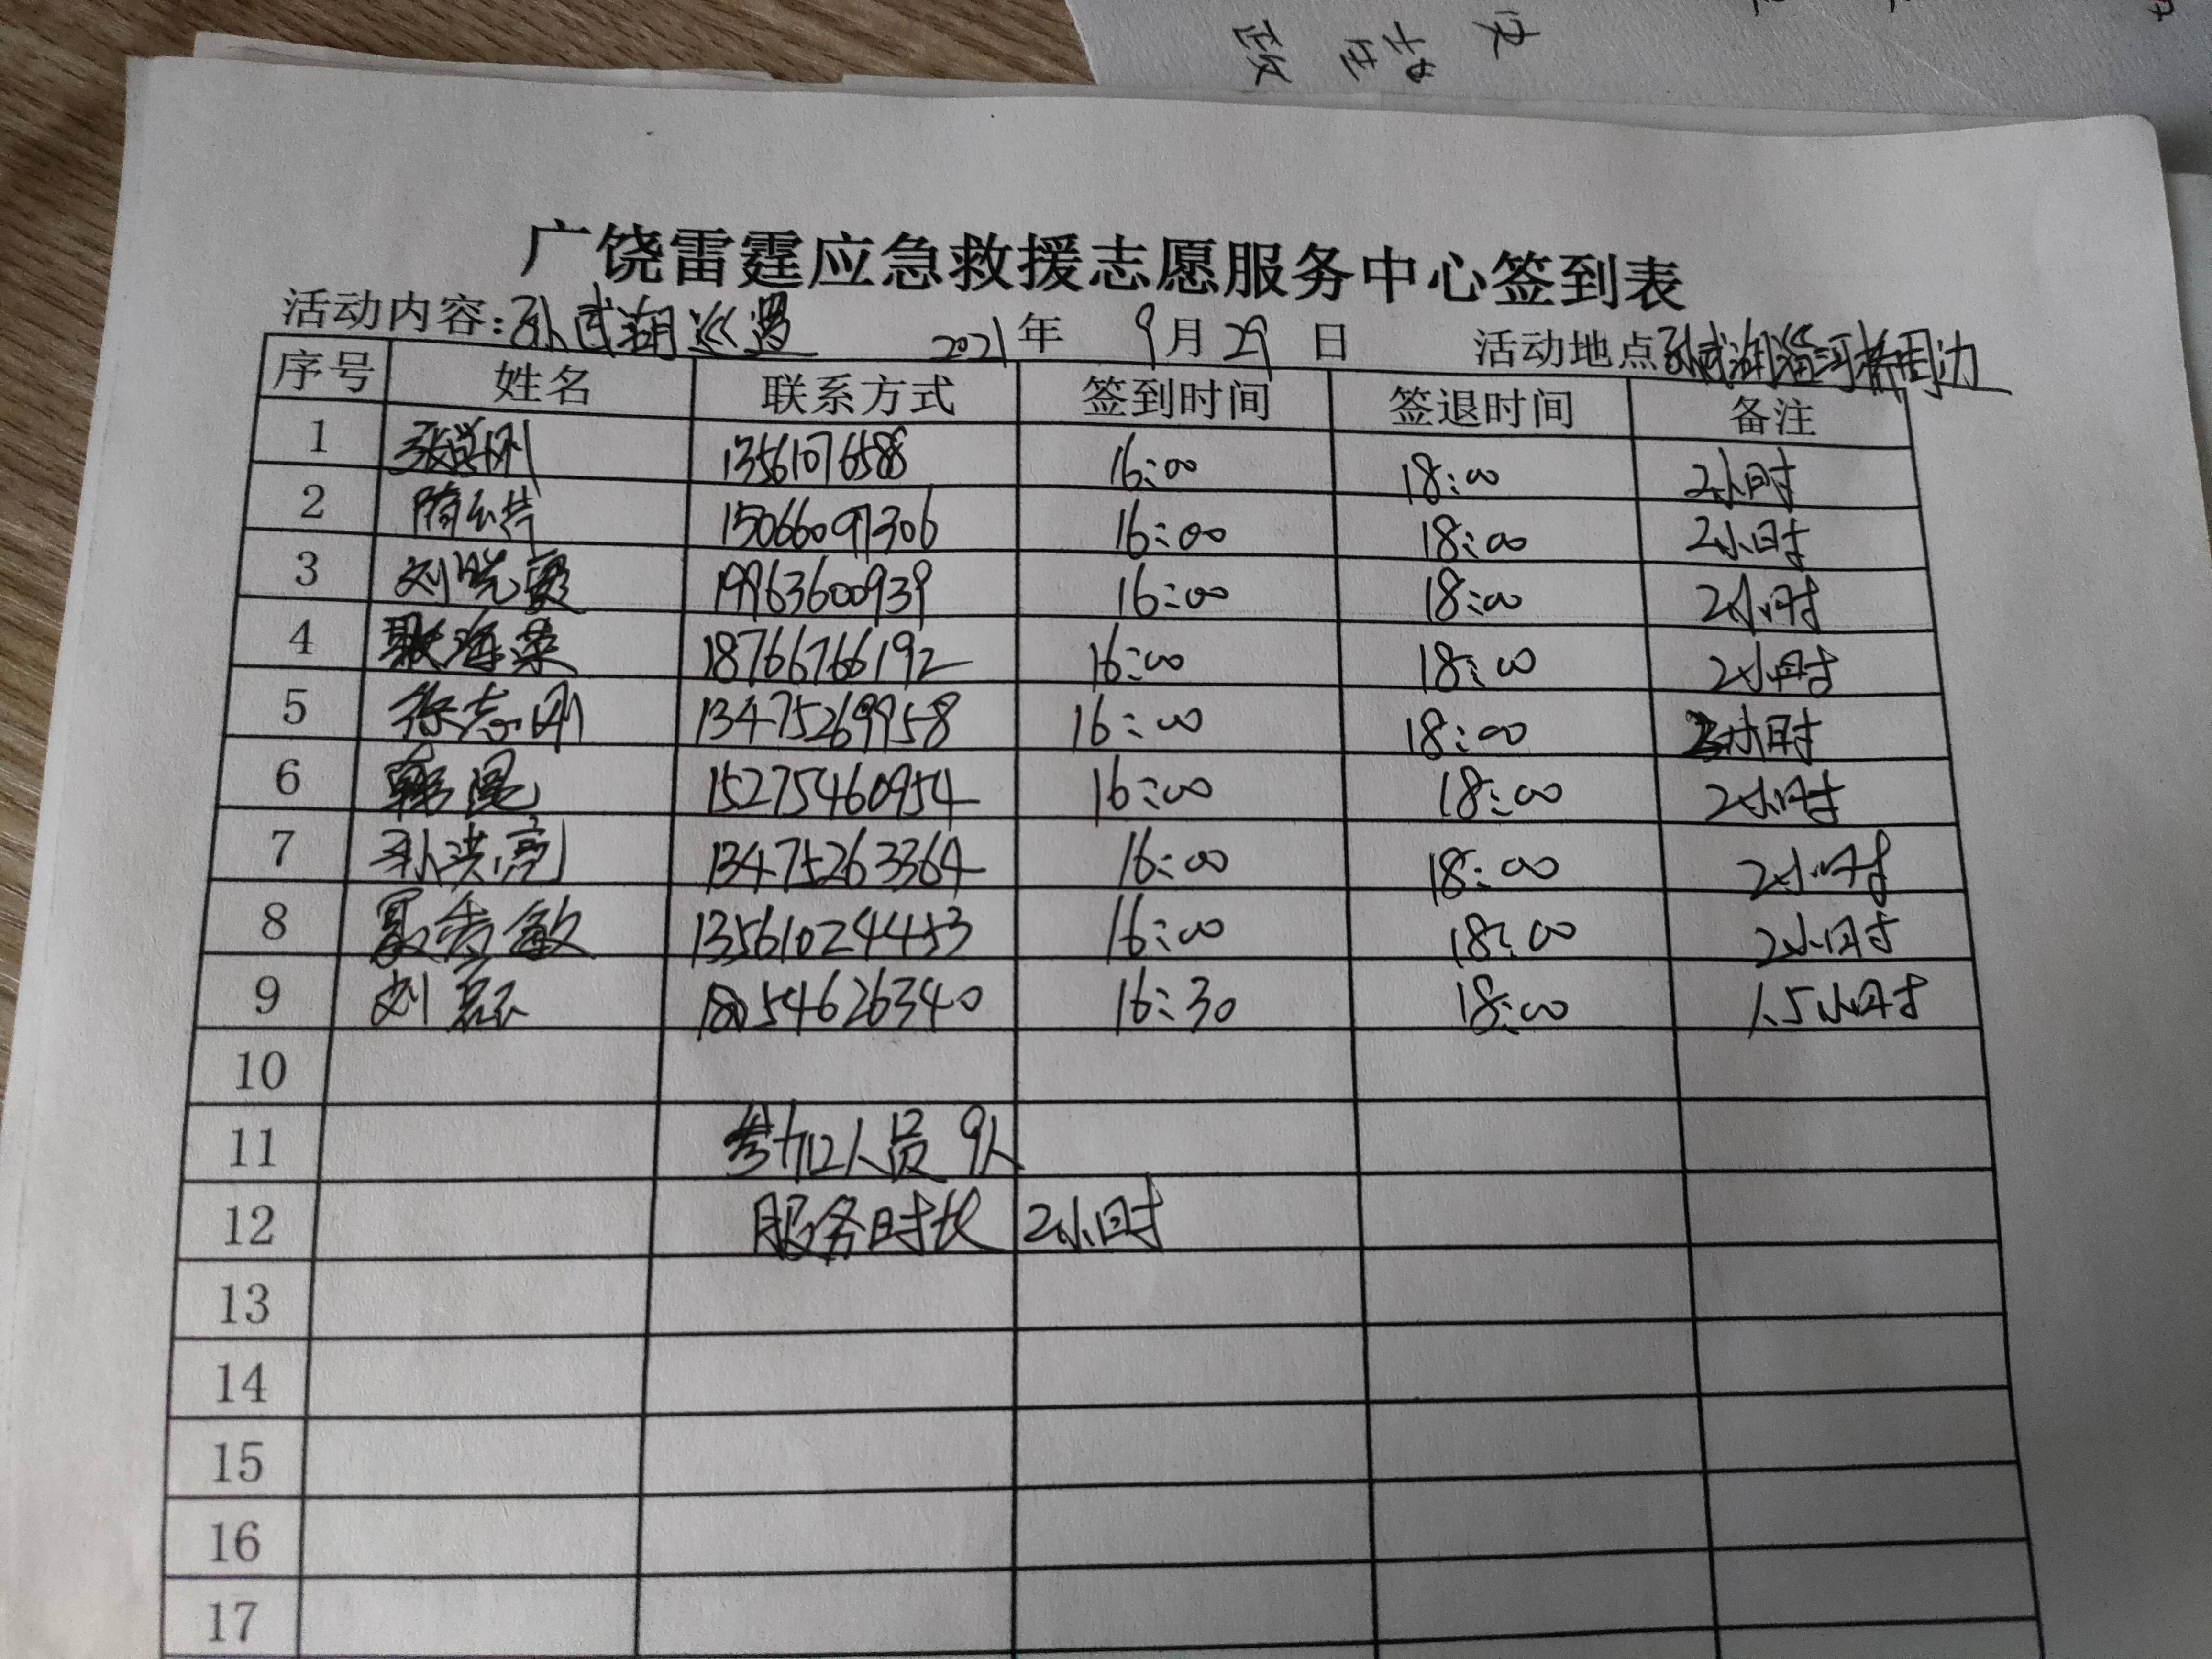 广饶雷霆应急救援志愿服务中心签到表
活动内容：孙武湖巡逻 2021年 9月29日 活动地点孙武湖淄河桥周边
序号 姓名 联系方式 签到时间 签退时间 备注
1 13561076588 16:00 18:00 2小时
2 15066097306 16:00 18:00 2小时
3 刘晓霞 19963600939 16:00 18:00 2小时
4 耿海荣 18766766192 16:00 18:00 2小时
5 徐志刚 13475269958 16:00 18:00 2小时
6 韩昆 15275460954 16:00 18:00 2小时
7 孙洪亮 13475263364 16:00 18:00 2小时
8 聂秀敏 13561024453 16:00 18:00 2小时
9 刘磊 18054626340 16:30 18:00 1.5小时
10
11 参加人员 9人
12 服务时长 2小时
13
14
15
16
17